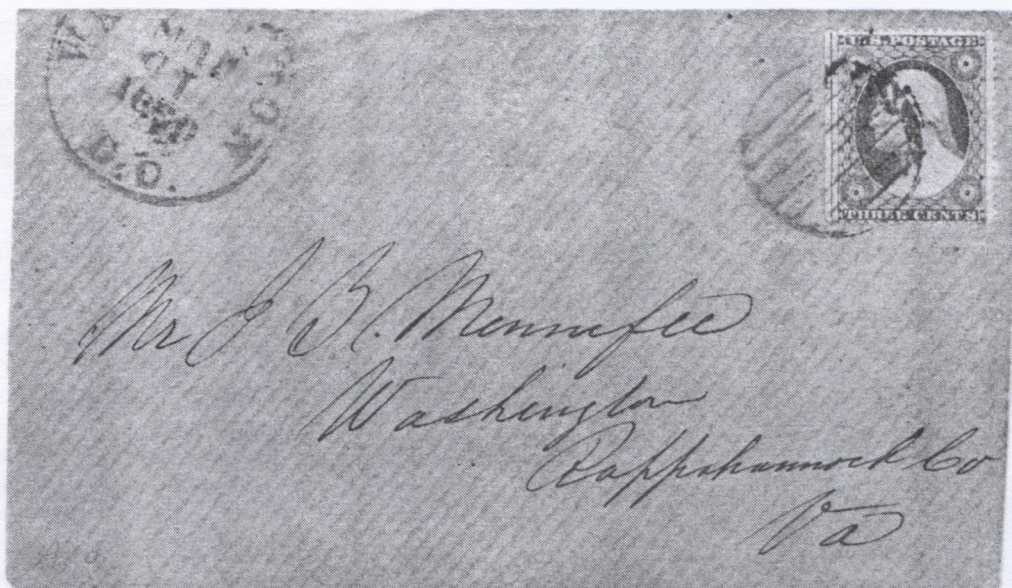 WASHINGTON
21
D.C.
U.S. POSTAGE
THREE CENTS
Mr J B. Mennefee
Washington
Rappahannock Co
Va